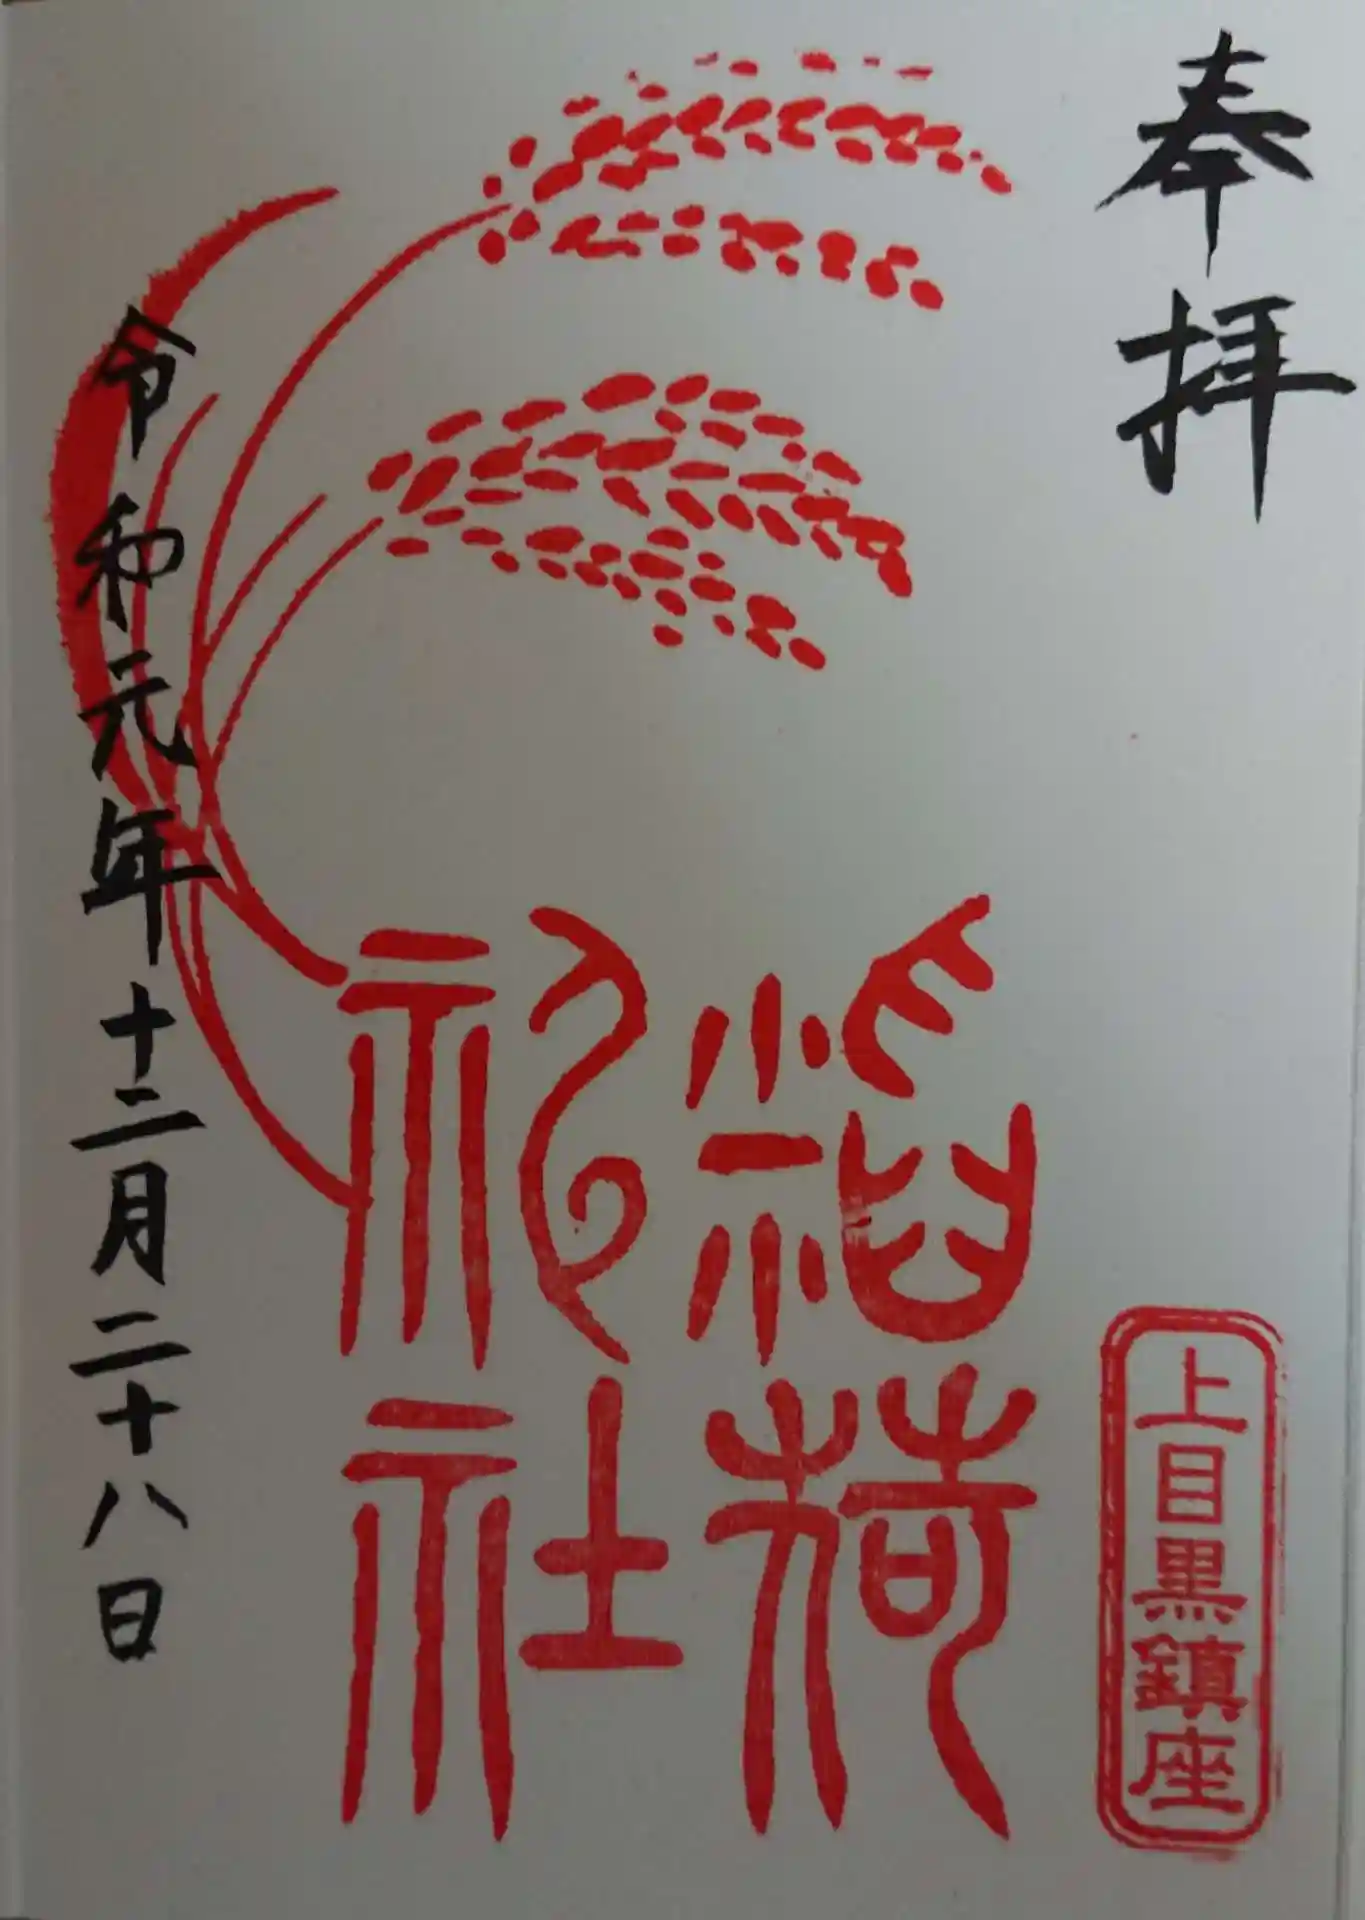 奉拝
上目黒鎮座
稲荷
神社
令和元年十二月二十八日